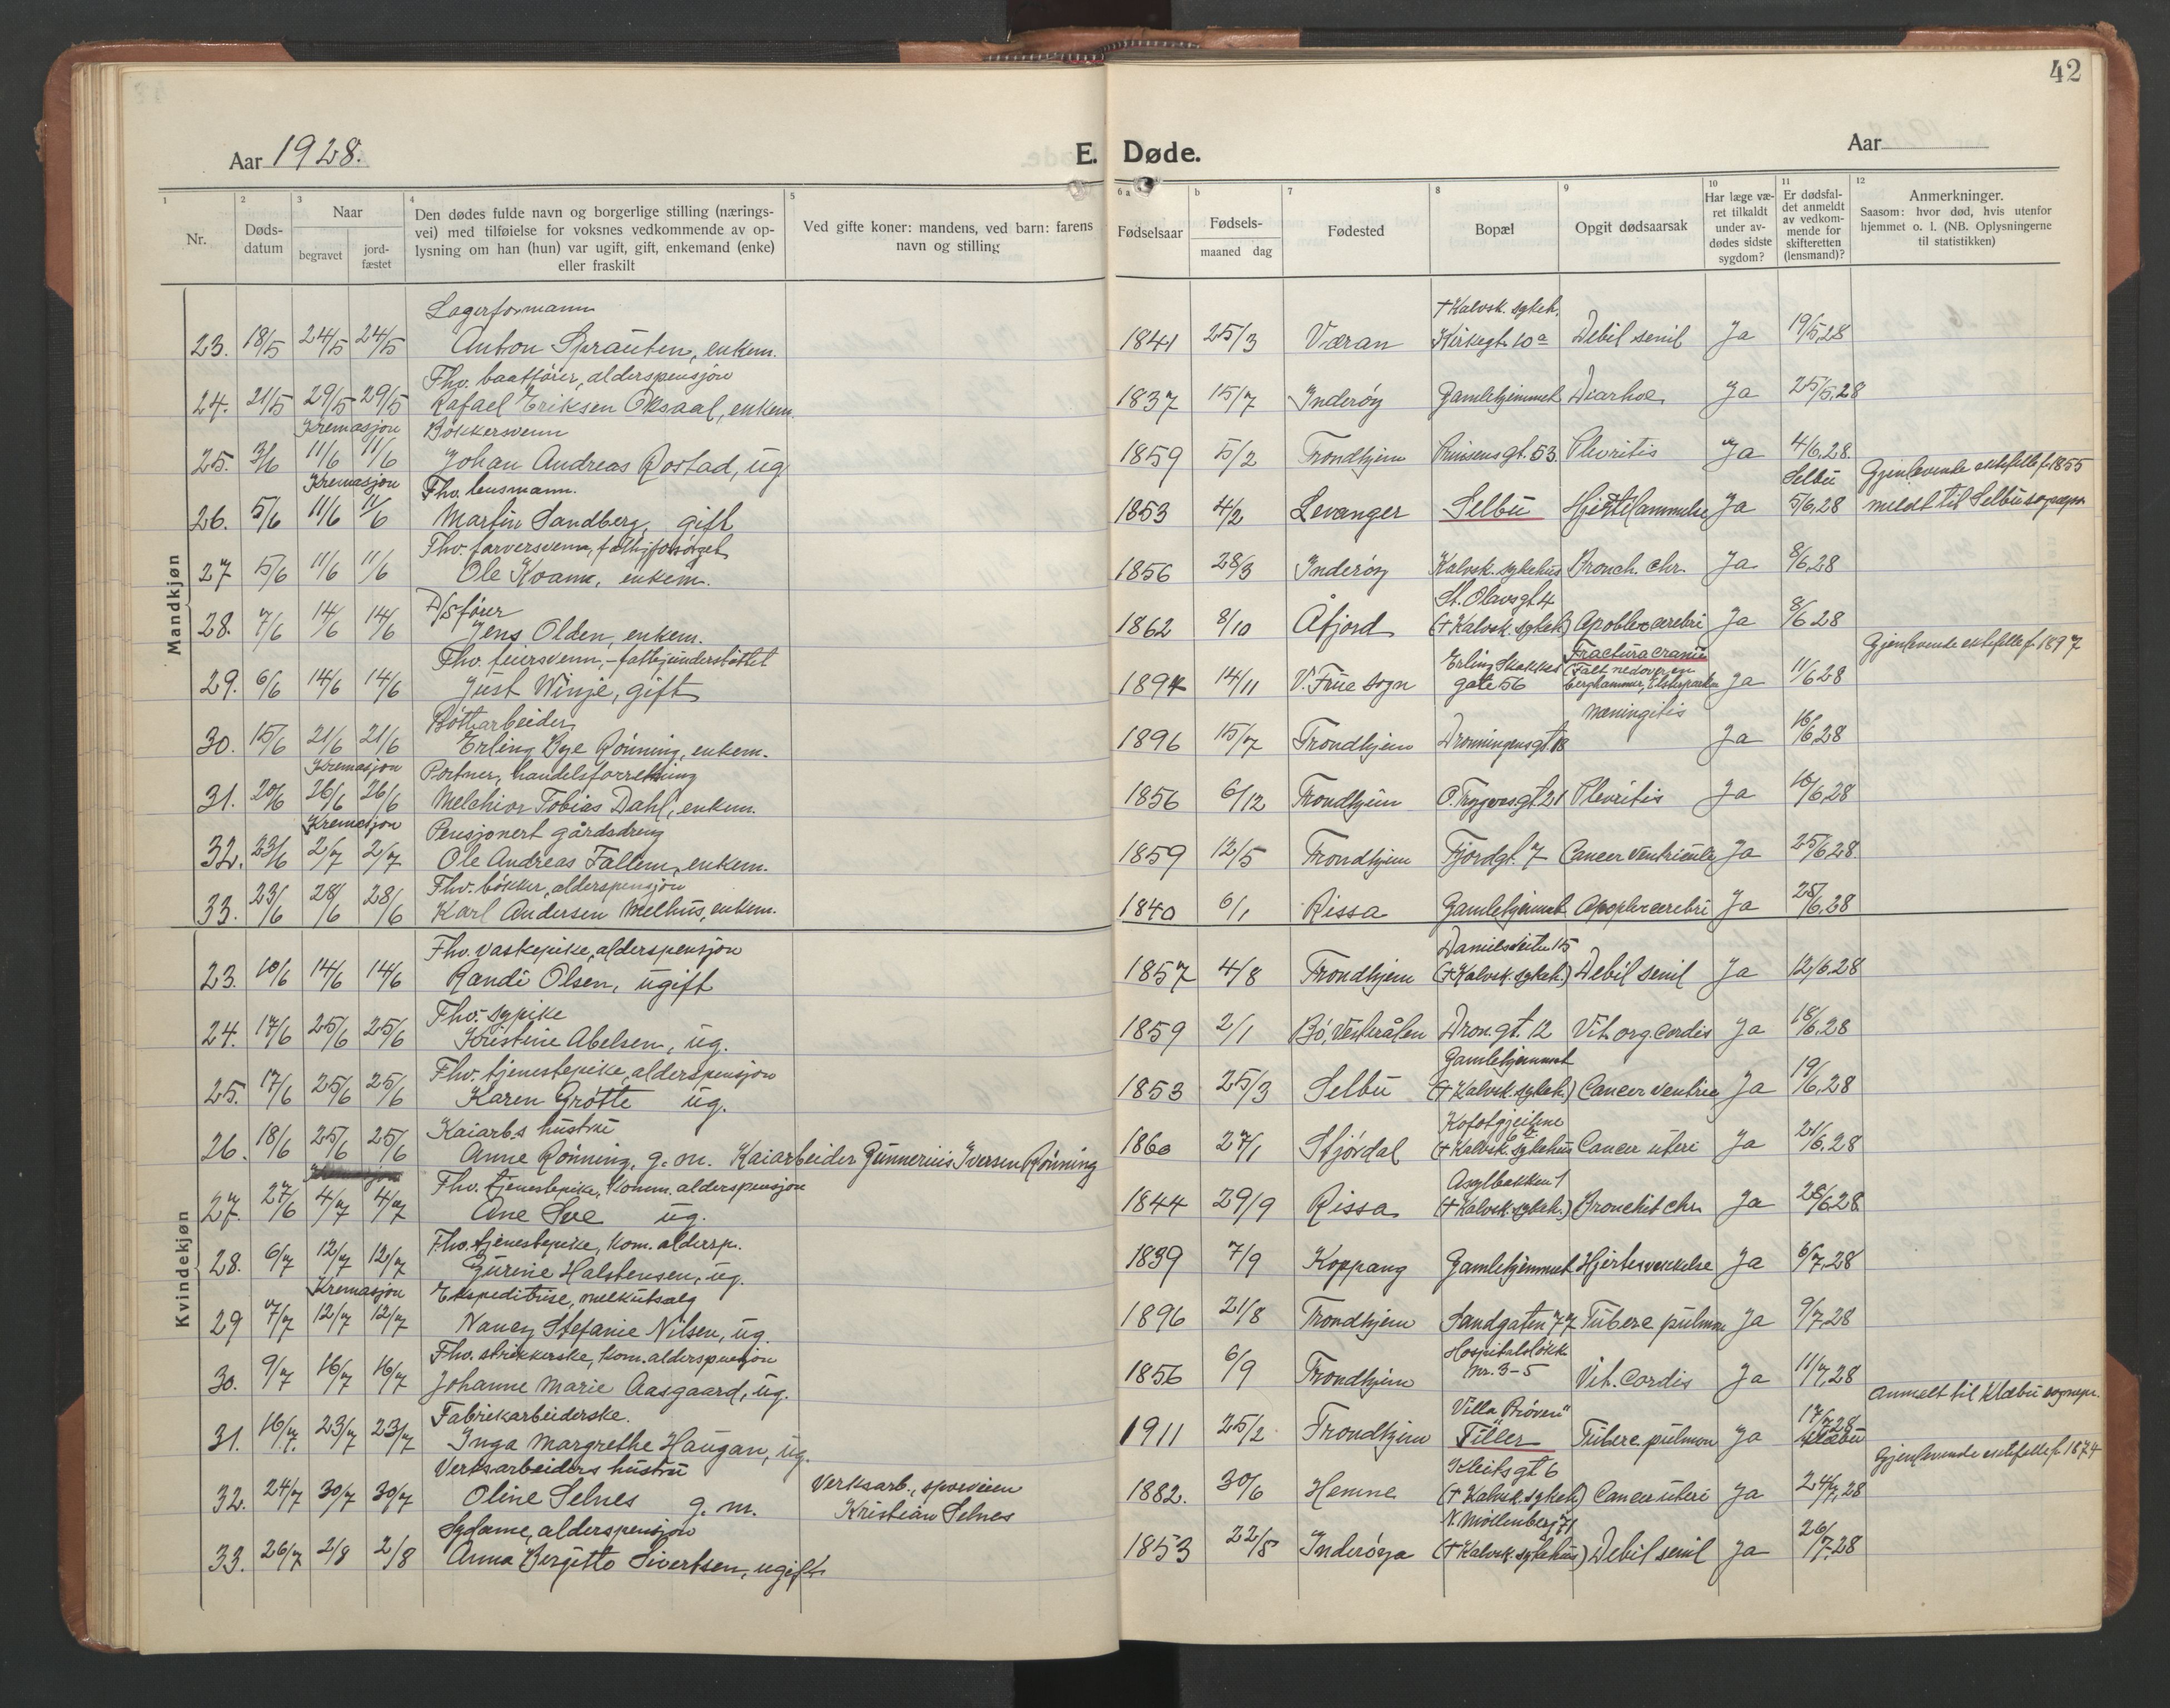 42
Aar 1928.
E. Døde.
Aar
1 2 3 4 5 6 a b 7 8 9 10 11 12
Nr.
Døds-
datum
Naar
begravet
jord-
fæstet
Den dødes fulde navn og borgerlige stilling (nærings-
vei) med tilføielse for voksnes vedkommende av op-
lysning om han (hun) var ugift, gift, enkemand (enke)
eller fraskilt
Ved gifte koner: mandens, ved barn: farens
navn og stilling
Fødselsaar
Fødsels-
maaned dag
Fødested
Bopæl
Opgit dødsaarsak
Har læge væ-
ret tilkaldt
under av-
dødes sidste
sygdom?
Er dødsfal-
det anmeldt
av vedkom-
mende for
skifteretten
(lensmand)?
Anmerkninger.
Saasom: hvor død, hvis utenfor
hjemmet o. l. (NB. Oplysningerne
til statistikken)
Mandkjøn
Lagerformann † Kalvsk. sykeh.
23. 18/5 24/5 24/5 Anton Sprauten, enkem. 1841 25/3 Væran Kirkegt. 10a Debil senil Ja 19/5,28
Fhv. baatfører, alderspensjon
24. 21/5 29/5 29/5 Rafael Eriksen Oksaal, enkem. 1837 15/7 Inderøy Gamlehjemmet Diarhoe Ja 25/5,28
Kremasjon Bøkkersvenn
25. 3/6 11/6 11/6 Johan Andreas Rostad, ug. 1859 5/2 Trondhjem Prinsensgt. 53. Plevritis Ja 4/6,28.
Kremasjon Fhv. lensmann. Selbu Gjenlevende ektefelle f. 1855
26. 5/6 11/6 11/6 Martin Sandberg, gift 1853 4/2 Levanger Selbu Hjertelammelse Ja 5/6,28 meldt til Selbu sognepr.
Fhv. farversvenn, fattigforsørget
27 5/6 11/6 11/6 Ole Kvam, enkem. 1856 28/3 Inderøy Kalvsk. sykehus Bronch. chr. Ja 8/6,28
D/S fører St. Olavsgt 4
28. 7/6 14/6 14/6 Jens Olden, enkem. 1862 8/10 Åfjord († Kalvsk. sykeh.) Apoblex cerebri Ja 8/6 28
Fhv. feiersvenn, - fattigunderstøttet Erling Skakkes Fractura cranii Gjenlevende ektefelle f. 1897
29. 6/6 14/6 14/6 Just Winje, gift 1894 14/11 V. Frue sogn gate 56 (Falt nedover en berghammer, Elsterparken Ja 11/6 28
Bøttarbeider Meningitis
30. 15/6 21/6 21/6 Erling Bye Rønning, enkem. 1896 15/7 Trondhjem Dronningensgt. 18 Ja 16/6,28
Kremasjon Portner, handelsforretning
31. 20/6 26/6 26/6 Melchior Tobias Dahl, enkem. 1856 6/12 Trondhjem O. Trygves.gt. 21 Plevritis Ja 10/6,28
Kremasjon Pensjonert gårdsdreng
32. 23/6 2/7 2/7 Ole Andreas Fallem, enkem. 1859 12/5 Trondhjem Fjordgt. 7 Cancer ventriculi Ja 25/6 28.
Fhv. bøkker, alderspensjon
33. 23/6 28/6 28/6 Karl Andersen Melhus, enkem. 1840 6/1 Rissa Gamlehjemmet Apoplex cerebri Ja 25/6,28
Kvindekjøn
Fhv. vaskepike, alderspensjon Danielsveita 15
23. 10/6 14/6 14/6 Randi Olsen, ugift 1857 4/8 Trondhjem († Kalvsk. sykeh.) Debil senil Ja 12/6.28
Fhv. sypike
24. 17/6 25/6 25/6 Kristine Abelsen, ug. 1859 2/1 Bø, Vesterålen Dron.gt. 12 Vit. org. cordis Ja 18/6,28
Fhv. tjenestepike, alderspensjon Gamlehjemmet
25. 17/6 25/6 25/6 Karen Grøtte ug. 1853 25/3 Selbu († Kalvsk. sykeh.) Cancer ventric Ja 19/6,28
Kaiarb.s hustru
26. 18/6 25/6 25/6 Anne Rønning, g. m. Kaiarbeider Gunnerius Iversen Rønning 1860 27/1 Stjørdal († Kalvsk. sykehus Cancer uteri Ja 21/6,28
Fhv. tjenestepike, komm. alderspensjon Asylbakken 1
27. 27/6 4/7 4/7 Ane Sve ug. 1844 29/9 Rissa († Kalvsk. sykeh.) Bronchit chr. Ja 28/6 28
Fhv. tjenestepike, kom. aldersp.
28. 6/7 12/7 12/7 Gurine Halstensen, ug. 1839 7/9 Koppang Gamlehjemmet Hjertesvekkelse Ja 6/7,28
Kremasjon Ekspeditrise, melkutsalg
29 7/7 12/7 12/7 Nancy Stefanie Nilsen, ug. 1896 21/8 Trondhjem Sandgaten 77 Tuberc pulmon Ja 9/7,28
Fhv. strikkerske, kom. alderspensjon Hospitalsløkk
30. 9/7 16/7 16/7 Johanne Marie Aasgaard, ug. 1856 6/9 Trondhjem nr. 3-5 Vit. Cordis Ja 11/7,28
Fabrikarbeiderske. Anmelt til Klæbu sognepr.
31. 16/7. 23/7 23/7 Inga Margrethe Haugan, ug. 1911 25/2 Trondhjem Tiller Tuberc. pulmon Ja 17/7 28 Klæbu
Verksarbeiders hustru Verksarb., sporveien Kleitsgt 6 Gjenlevende ektefelle f. 1874
32. 24/7 30/7 30/7 Oline Selnes g. m. Kristian Selnes 1882. 30/6 Hemne († Kalvsk. sykeh.) Cancer uteri Ja 24/7,28
Sydame, alderspensjon N. Møllenberg 71
33. 26/7 2/8 2/8 Anna Bergitte Sivertsen, ugift 1853 22/8 Inderøya († Kalvsk. sykehus) Debil senil Ja 26/7,28